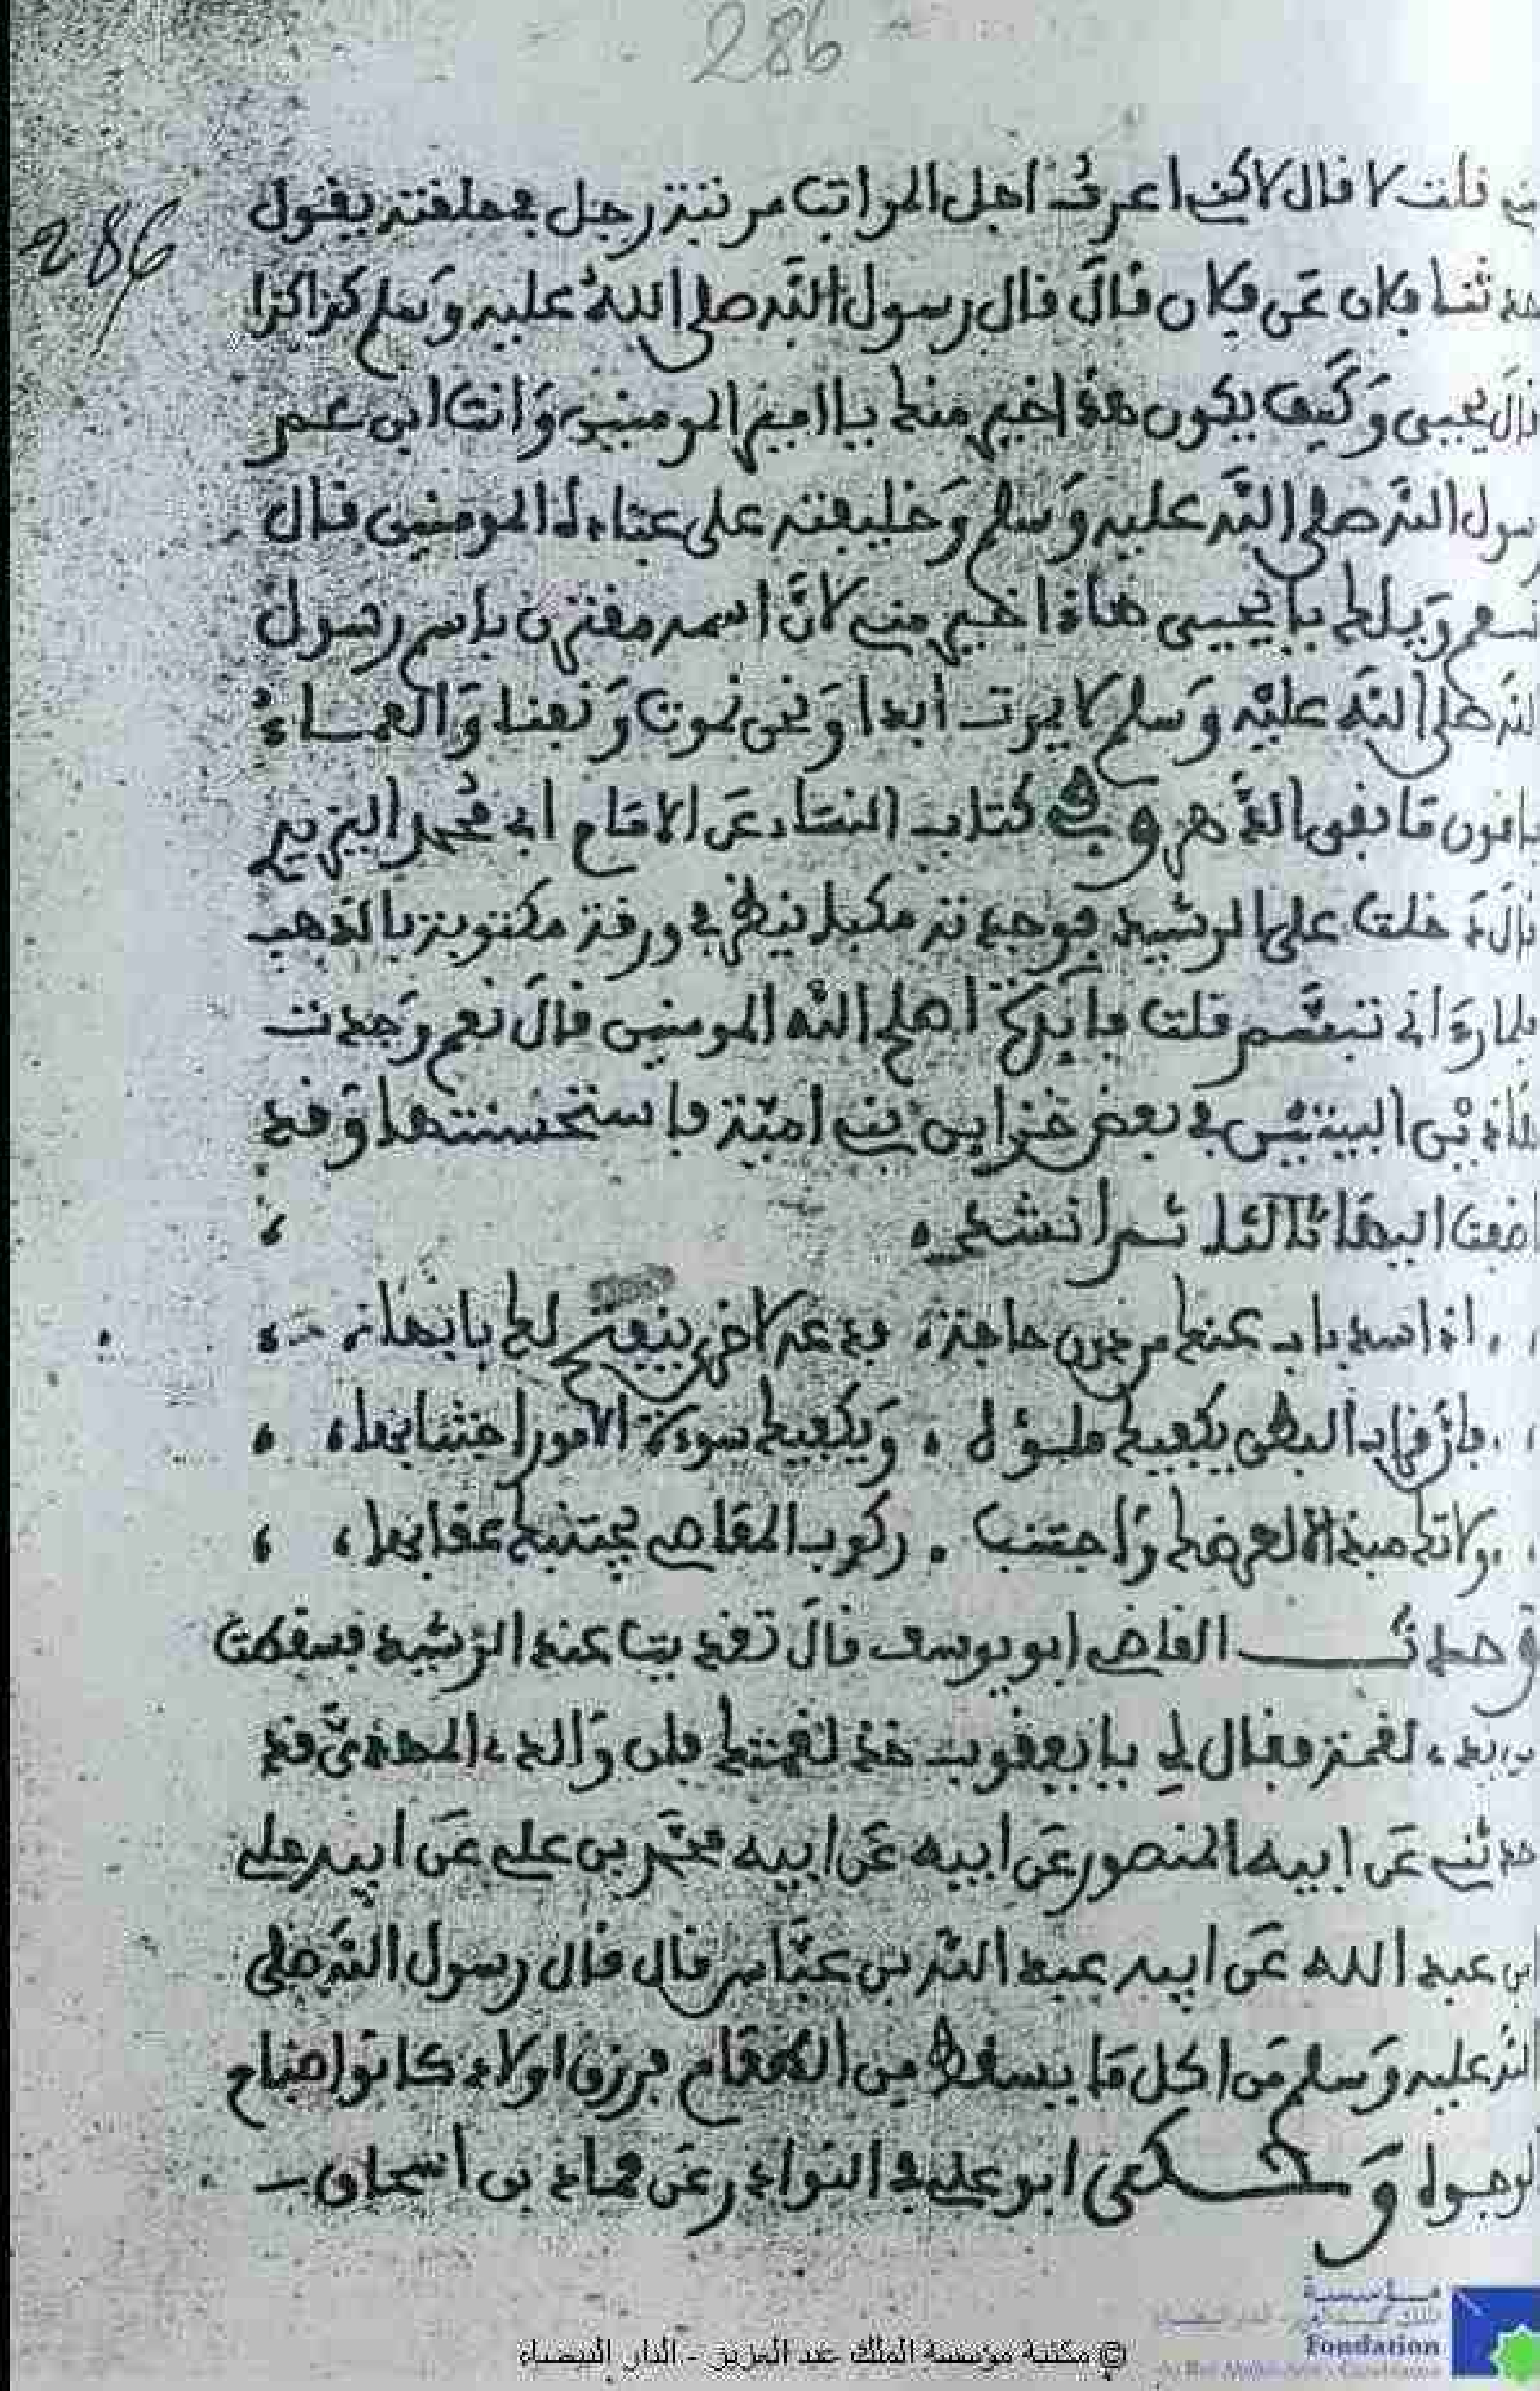 286
286
قلت لا قال لاكني اعرف اهل المراتب مرتبة رجل في حلقته يقول
حدثنا فلان عن فلان قال قال رسول الله صلى الله عليه وسلم كذا كذا
قال يحيى وكيف يكون هذا خير منك يا امير المومنين وانت ابن عم
رسول الله صلى الله عليه وسلم وخليفته على عباد المومنين قال
نعم ويلك يا يحيى هاذا خير مني لان اسمه مقترن باسم رسول
الله صلى الله عليه وسلم لا يموت ابدا ونحن نموت ونفنا والعماء
باقون ما بقي الدهر وفي كتاب عن الامام ابي محمد اليزيدي
قال دخلت على الرشيد فوجدته مكبا ينظر في ورقة مكتوبة بالذهب
فلما رءاني تبسم فلت فايدة اصلح الله المومنين قال نعم وجدت
هاذين البيتين في بعض خزاين بني امية فاستحسنتها وقد
اضفت اليهما ثالثا ثم انشد
اذا سد باب عنك من دون حاجة ، فدعه لاخرى ينفتح لك بابها
فان قراب البطن يكفيك ملؤه ، ويكفيك سوءة الامور اجتنابها ،
ولا تك مبذالا لعرضك واجتنب . ركوب المعاصي يجتنبك عقابها ،
وحدث القاضي ابو يوسف قال تغديت عند الرشيد فسقطت
من يدي لقمة فقال لي يا يعقوب خذ لقمتك فان والدي المهدي قد
حدثني عن ابيه المنصور عن ابيه عن ابيه محمد بن علي عن ابيه علي
بن عبد الله عن ابيه عبد الله بن عباس قال قال رسول الله صلى
الله عليه وسلم من اكل ما يسقط من الطعام فرزق اولاد كانوا صباح
الوجوه وحكى ابو علي في النوادر عن حماد بن اسحاق
© مكتبة مؤسسة الملك عبد العزيز - الدار البيضاء
مؤسسة
Fondation